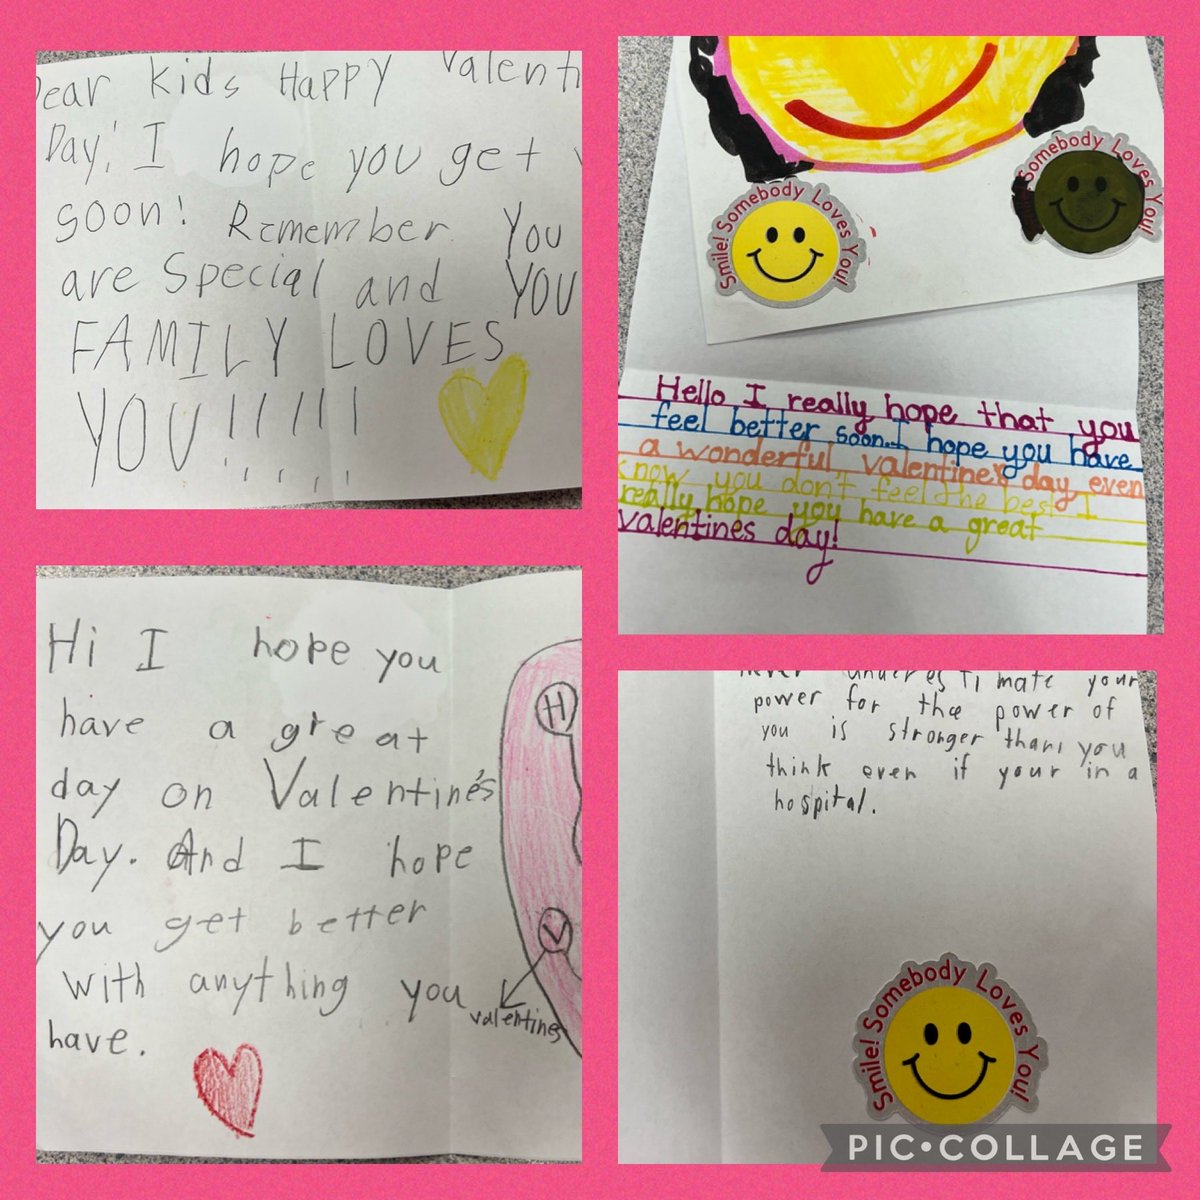 Dear Kids Happy Valenti
Day! I hope you get
soon! Remember You
are Special and YOU
FAMILY LOVES
YOU!!!!!
Smile! Somebody Loves You!
Somebody Loves You!
Hello I really hope that you
feel better soon. I hope you have
a wonderful valentine's day even
know you don't feel the best I
really hope you have a great
valentines day!
Hi I hope you
have a great
day on Valentine's
Day. And I hope
you get better
with anything you
have.
H
V
valentines
never underestimate your
power for the power of
you is stronger than you
think even if your in a
hospital.
Smile! Somebody Loves You!
PIC•COLLAGE